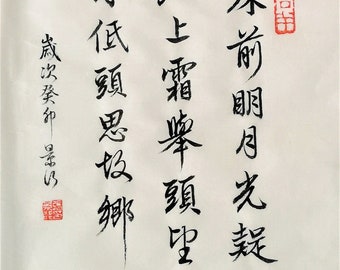 床前明月光疑
地上霜舉頭望
低頭思故鄉
歲次癸卯 景